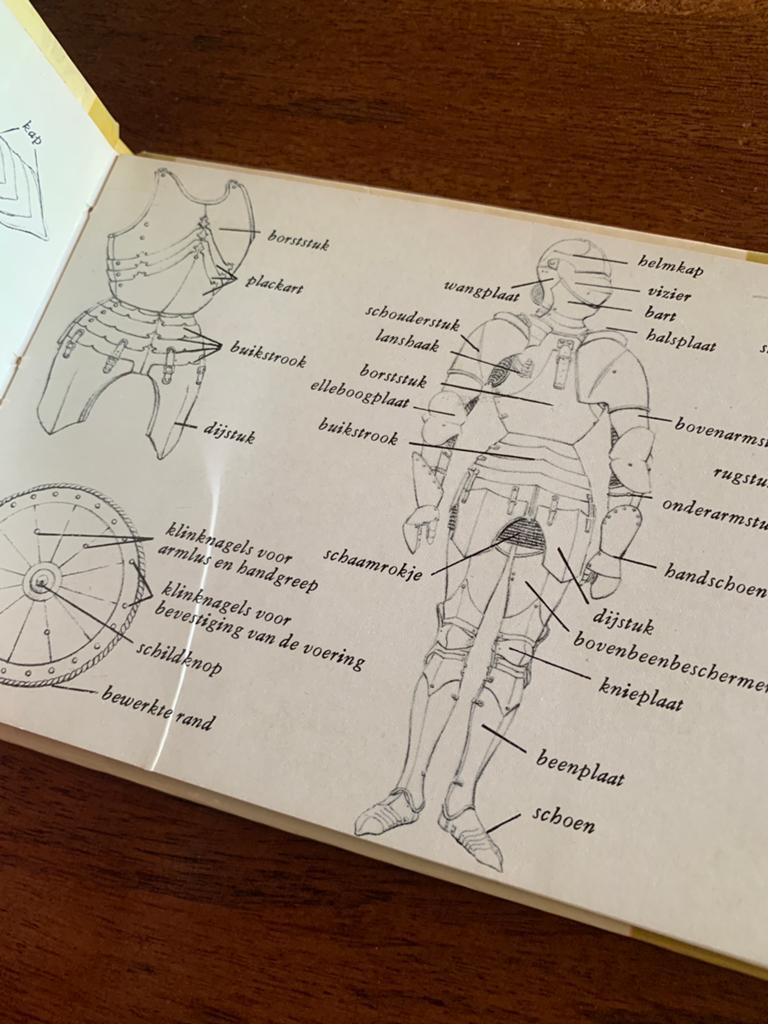 kap
borststuk
plackart
buikstrook
dijstuk
klinknagels voor
armlus en handgreep
klinknagels voor
bevestiging van de voering
schildknop
bewerkte rand
helmkap
wangplaat
vizier
bart
schouderstuk
halsplaat
lanshaak
borststuk
elleboogplaat
buikstrook
bovenarmst
rugstu
onderarmstu
schaamrokje
handschoen
dijstuk
bovenbeenbescherme
knieplaat
beenplaat
schoen